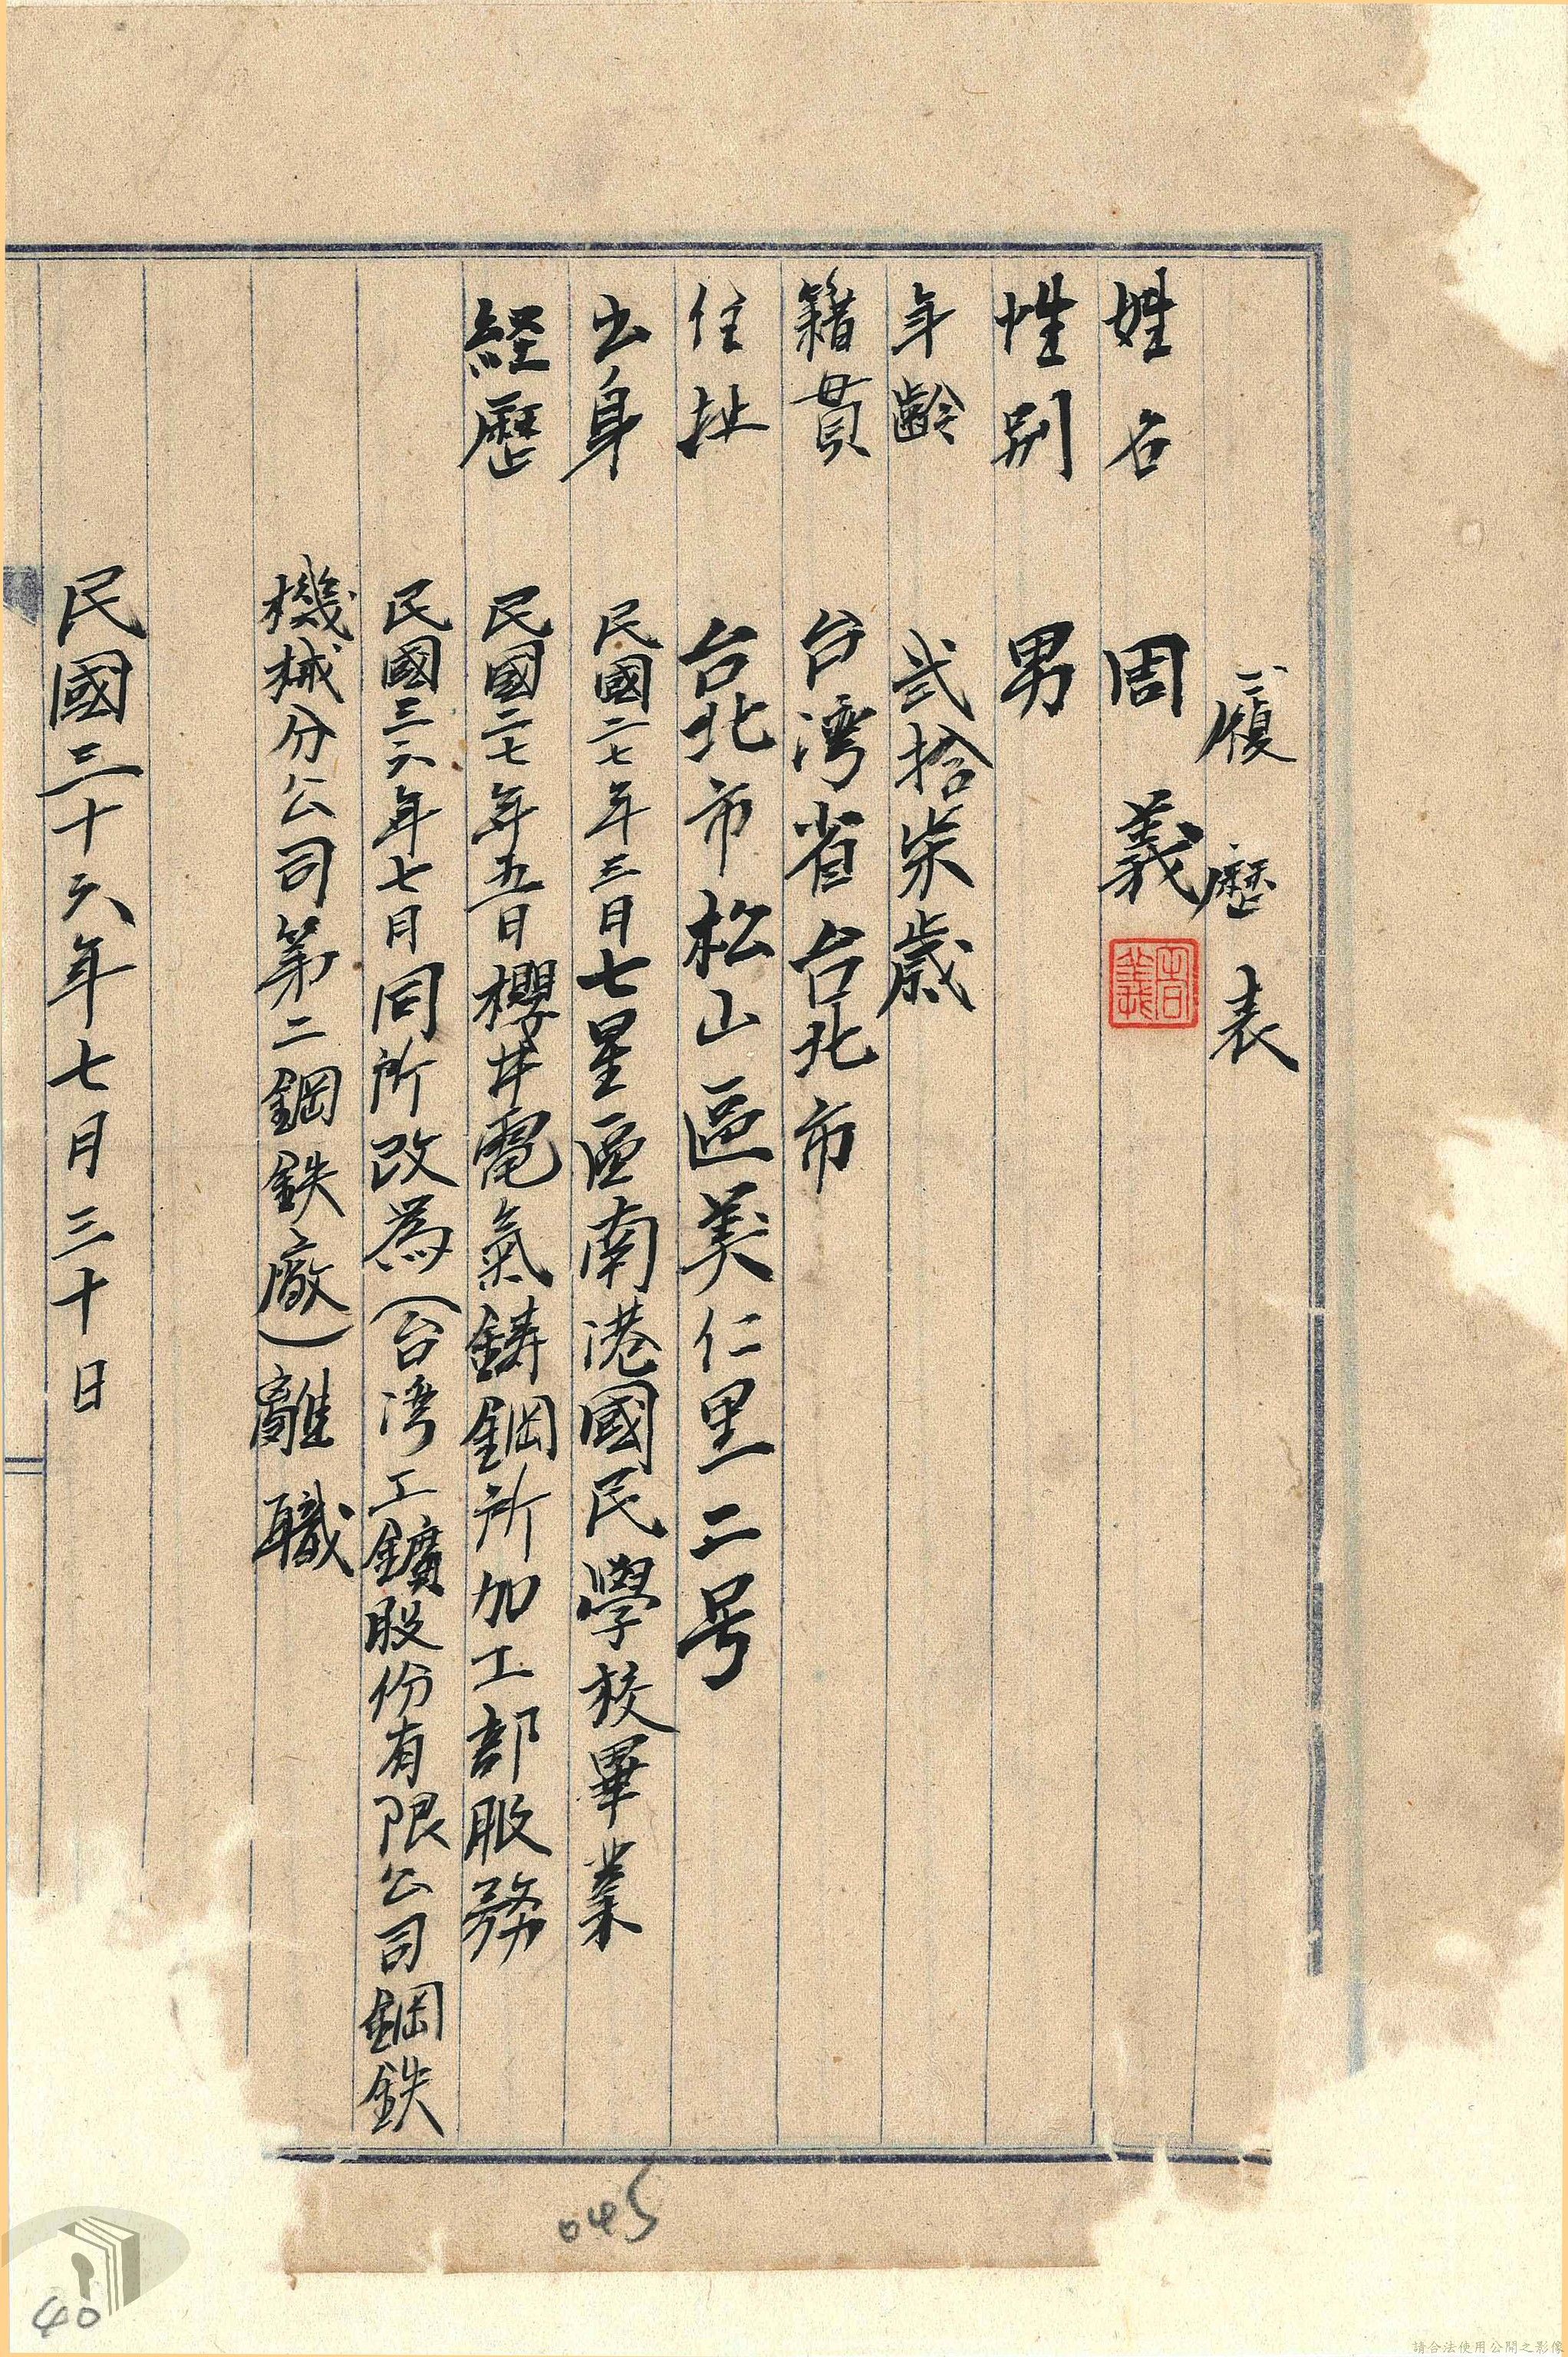 履歷表
姓名 周義
周義
性別 男
年齡 弐拾柒歲
籍貫 台湾省台北市
住址 台北市松山區美仁里二号
出身 民國二七年三月七星區南港國民學校畢業
経歷 民國二七年五月櫻井電氣鋳鋼所加工部服務
民國三六年七月同所改為(台湾工鑛股份有限公司鋼鉄
機械分公司第二鋼鉄廠)離職
民國三十六年七月三十日
045
40
請合法使用公開之影像